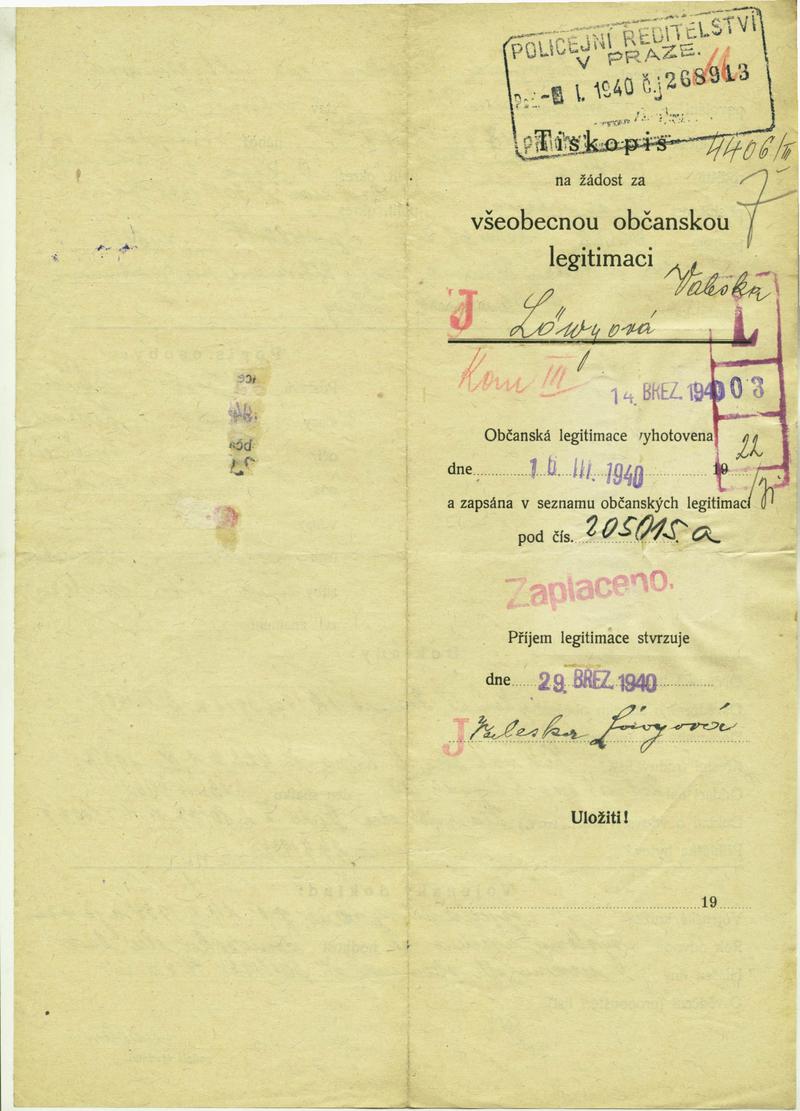 POLICEJNÍ ŘEDITELSTVÍ
V PRAZE.
I. 1940 č.j 268913
Tiskopis
4406/III
na žádost za
všeobecnou občanskou
legitimaci
Valeska
J Löwyová
L
Kom III
14. BŘEZ. 1940
03
Občanská legitimace vyhotovena
22
dne 16 III. 1940 19
a zapsána v seznamu občanských legitimací
pod čís. 205015 a
Zaplaceno.
Příjem legitimace stvrzuje
dne 29. BŘEZ. 1940
J Valeska Löwyová
Uložiti!
19